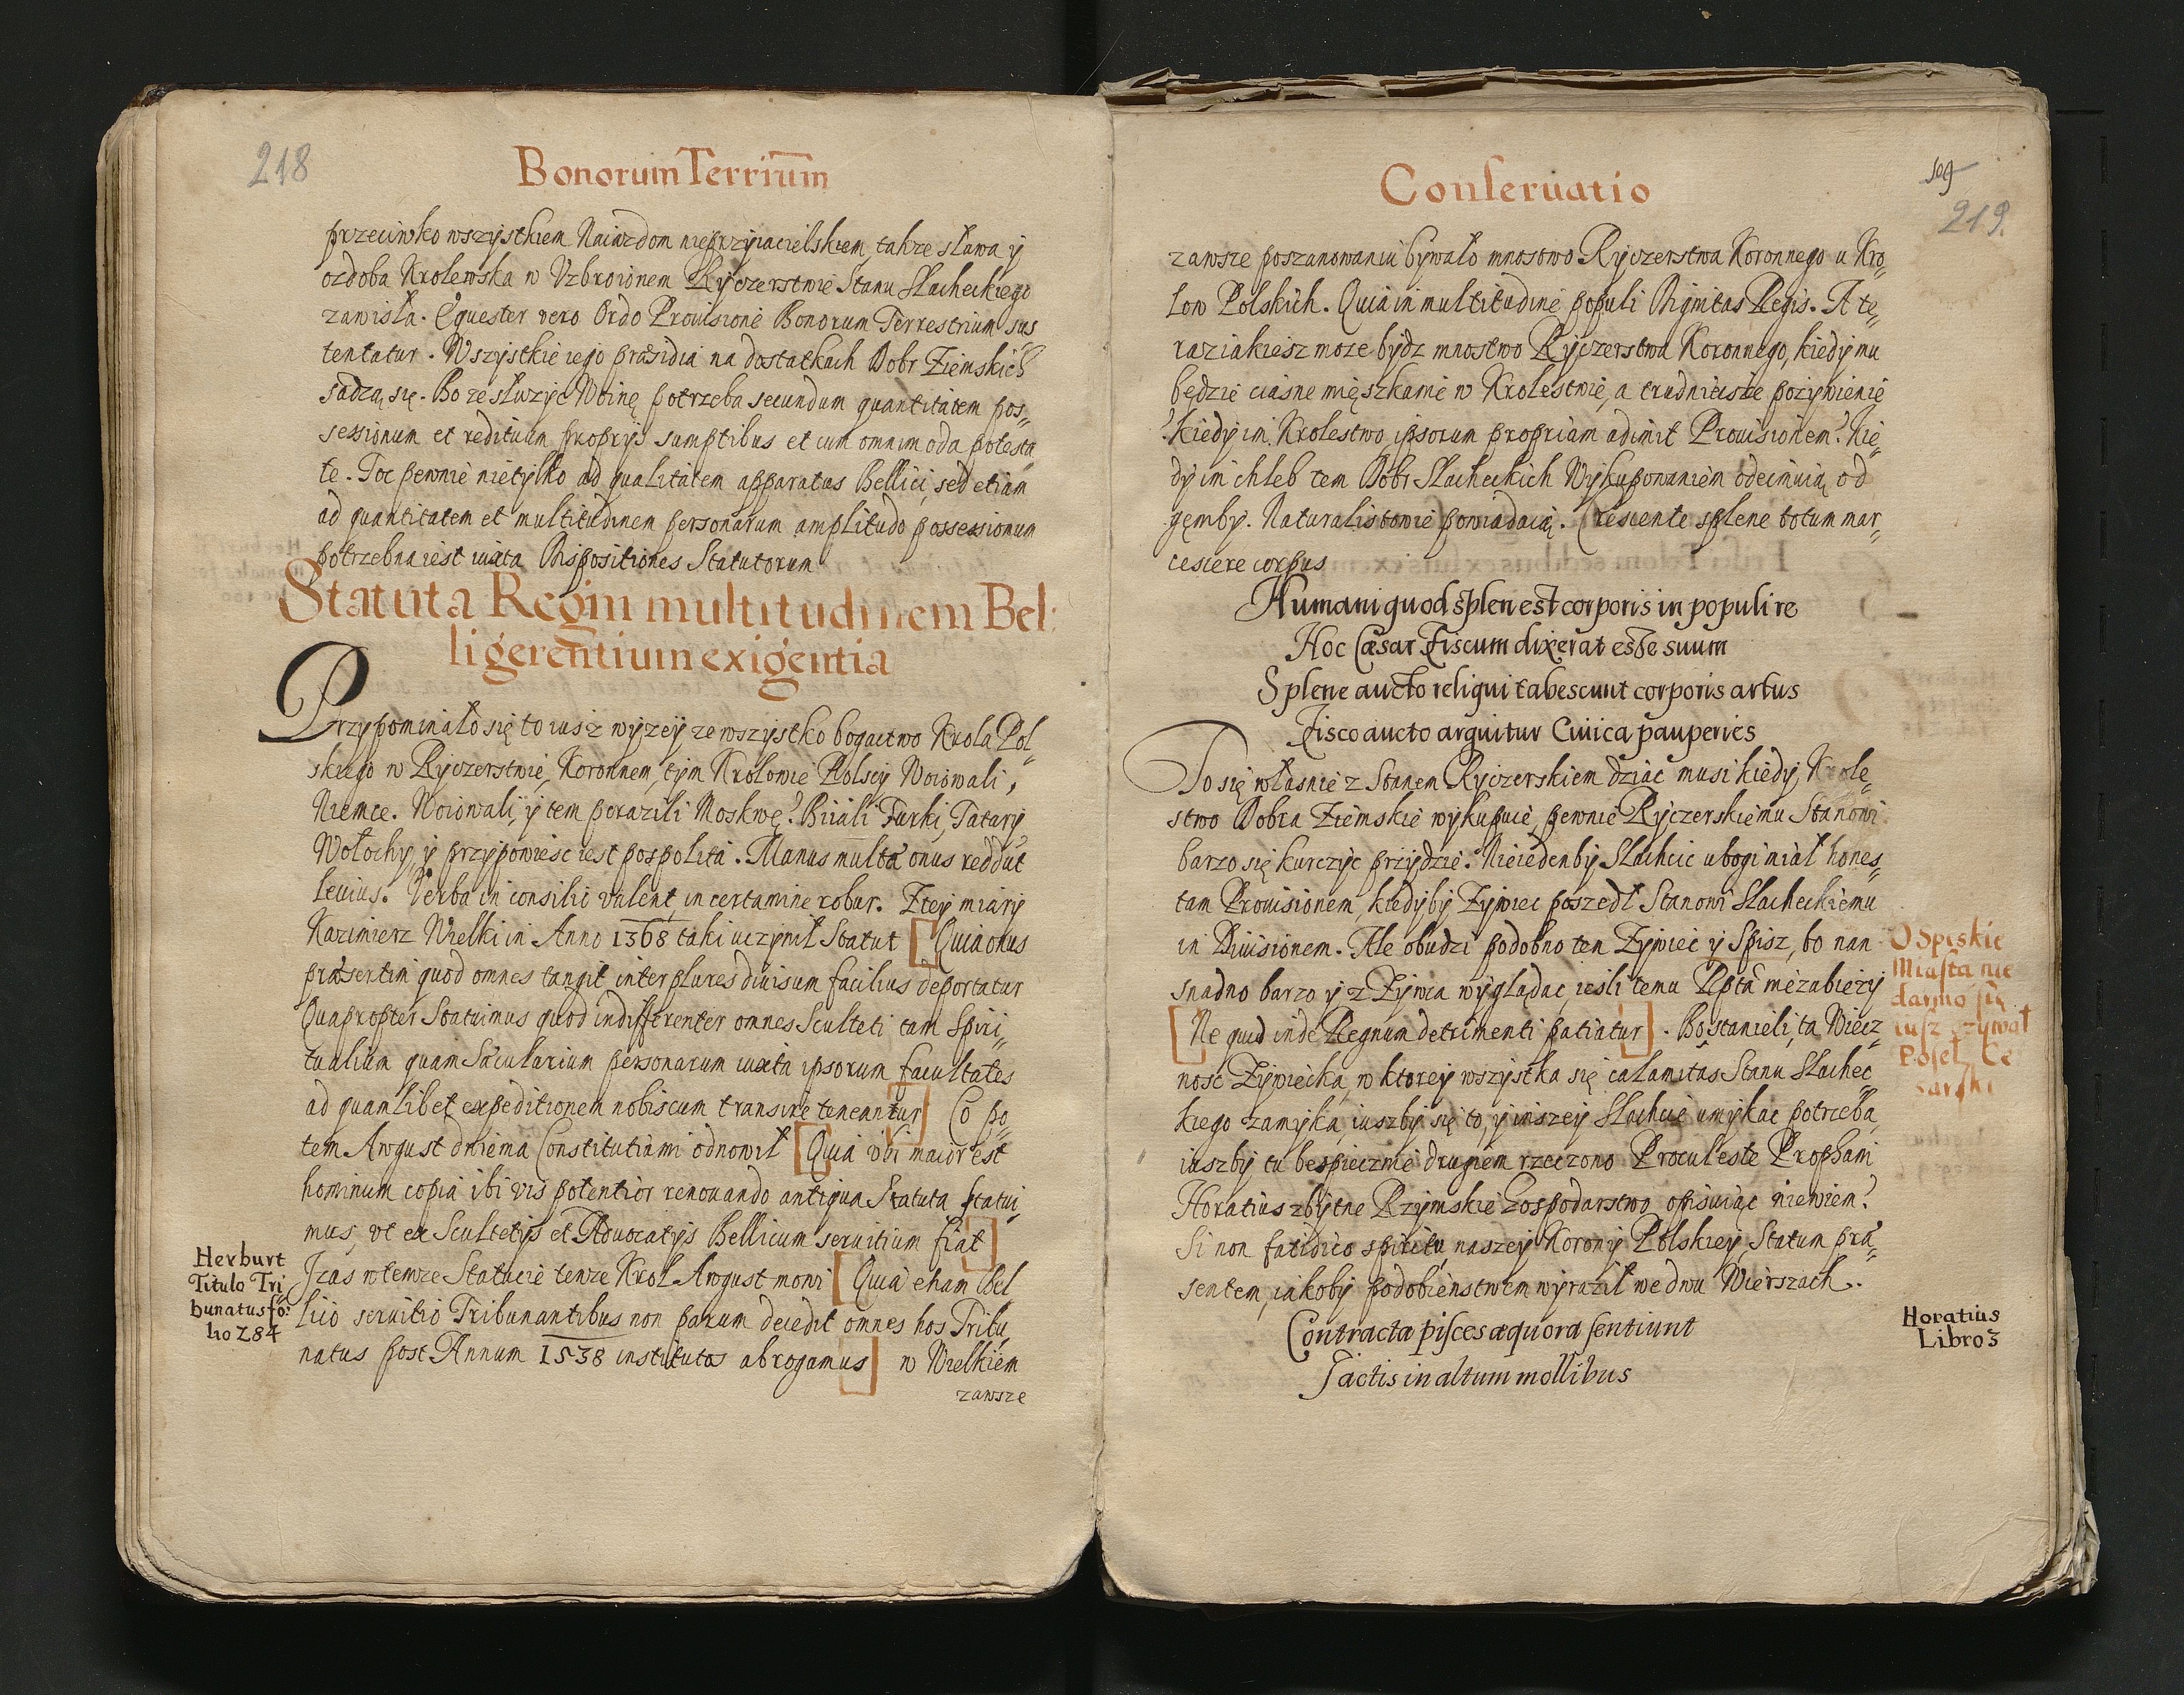 218
Bonorum Terrium̅
przeciwko wszystkiem Naiazdom nieprzyiacielskiem, takze sława y
ozdoba Krolewska w Vzbroionem Ryczerstwie Stanu Slacheckiego
zawisła. Equester vero Ordo Prouisione Bonorum Terrestrium sus
tentatur. Wszystkie iego præsidia na dostatkach Dobr Ziemskich
sadzą się. Bo ze słuzyc Woinę potrzeba secundum quantitatem pos„
sessionum et redituum proprijs sumptibus et cum omnimoda potesta„
te. Toc pewnie nietylko ad qualitatem apparatus Bellici, sed etiam
ad quantitatem et multitudinem personarum amplitudo possessionum
potrzebna iest iuxta Dispositiones Statutorum
Statuta Regni multitudinem Bel:
ligerentium exigentia
Przypominało się to iusz wyzey ze wszystko bogactwo Krola Pol„
skiego w Ryczerstwie, Koronnem, tym Krolowie Polscy Woiowali,
Niemce. Woiowali, y tem porazili Moskwę? Biiali Turki, Tatary
Wołochy, y przypowiesc iest pospolita. Manus multa onus reddut
leuius. Verba in consilic valent, in certamine robur. Ztey miary
Kazimierz Wielki in Anno 1368 taki uczynił Statut [Quia onus
præsertim quod omnes tangit, inter plures diuisum facilius deportatur
Quapropter Statuimus quod indifferenter omnes Sculteti tam Spiri„
tualium quam Sæcularium personarum iuxta ipsorum facultates
ad quamlibet expeditionem nobiscum transire teneantur] Co po„
tem Awgust dwiema Constitutiami odnowił [Quia vbi maior est
hominum copia ibi vis potentior renouando antiqua Statuta statui„
mus, vt ex Scultetijs et Aduocatijs Bellicum seruitium fiat]
Izas w temze Statucie tenze Krol Awgust mowi [Quia etiam Bel
lico seruitio Tribunantibus non parum decedit omnes hos Tribu„
natus post Annum 1538 institutos abrogamus] w Wielkiem
zawsze
Herburt
Titulo Tri„
bunatus fo:
lio 284
Conseruatio
109
219.
zawsze poszanowaniu bywało mnostwo Ryczerstwa Koronnego u Kro„
low Polskich. Quia in multitudine populi Dignitas Regis. A te„
raz iakiesz moze bydz mnostwo Ryczerstwa Koronnego, kiedy mu
będzie ciasne mięszkanie w Krolestwie, a trudnieisze pozywienie
? kiedy im Krolestwo ipsorum propriam adimit Prouisionem? Kie„
dy im chleb tem Dobr Slacheckich Wykupowaniem odeimuią od
gęmby. Naturalistowie powiadaią. Crescente splene totum mar„
cescere corpus
Humani quod splen est corporis in populi re
Hoc Cæsar Fiscum dixerat esse suum
Splene aucto reliqui tabescunt corporis artus
Fisco aucto arguitur Ciuica pauperies
To się własnie z Stanem Ryczerskiem dziac musi kiedy Krole„
stwo Dobra Ziemskie wykupuie, pewnie Ryczerskiemu Stanowi
barzo się kurczyc przydzie. Nieiedenby Slachcic ubogi miał hones„
tam Prouisionem, kiedyby Zywiec poszedł Stanowi Slacheckiemu
in Diuisionem. Ale obudzi podobno ten Zywiec y Spisz, bo nan
snadno barzo y z Zywca wyglądac, iesli temu Rpta niezabiezy
[Ne quid inde Regnum detrimenti patiatur]. Bo stanieli, ta Wiecz„
nosc Zywiecka, w ktorey wszystka się calamitas Stanu Slachec
kiego zamyka, iuszby się to, y inszey Slachcie umykac potrzeba,
iuszby tu bespiecznie drugiem rzeczono Procul este Prophani
Horatius zbytne Rzymskie Gospodarstwo opisuiąc niewiem?
Si non fatidico spiritu, naszey Korony Polskiey, Statum præ„
sentem, iakoby podobienstwem wyraził we dwu Wierszach..
Contracta pisces æquora sentiunt
Iactis in altum mollibus
O Spiskie
Miasta nie
darmo się
iusz ozywał
Poseł Ce
sarski
Horatius
Libro 3